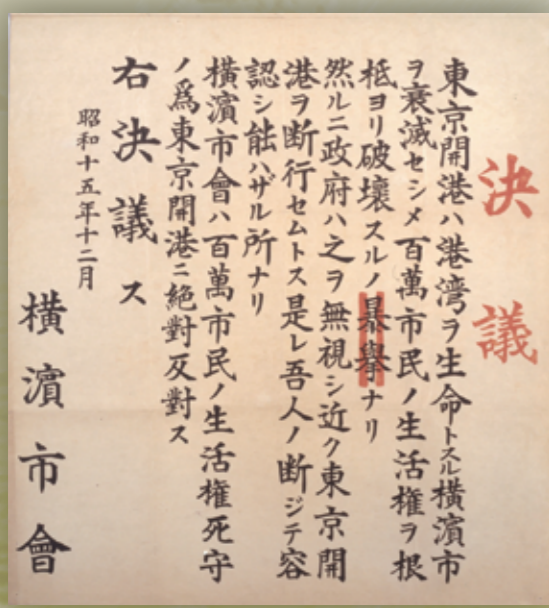 決議
東京開港ハ港湾ヲ生命トスル横濱市
ヲ衰滅セシメ百萬市民ノ生活權ヲ根
柢ヨリ破壊スルノ暴擧ナリ
然ルニ政府ハ之ヲ無視シ近ク東京開
港ヲ断行セムトス是レ吾人ノ断ジテ容
認シ能ハザル所ナリ
横濱市會ハ百萬市民ノ生活權死守
ノ爲東京開港ニ絶對反對ス
右決議ス
昭和十五年十二月
横濱市會